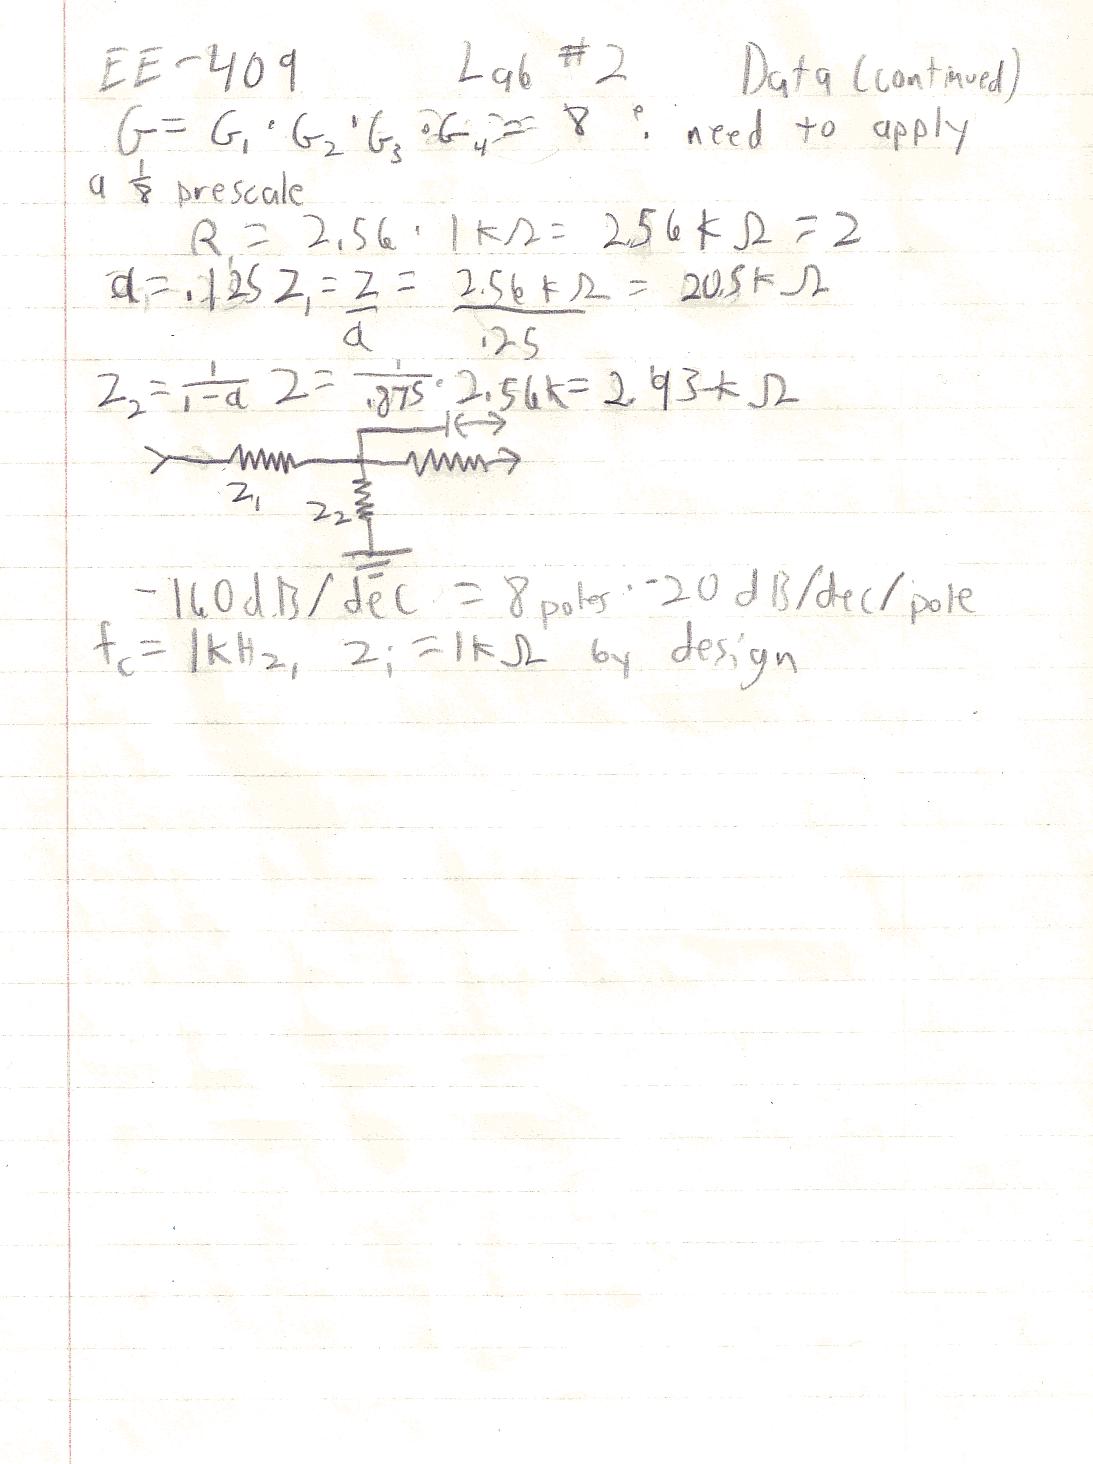 EE-409 Lab #2 Data (continued)
G = G₁ · G₂ · G₃ · G₄ = 8 ∴ need to apply
a 1/8 prescale
R₁ = 2.56 · 1kΩ = 2.56kΩ = Z
α = .125 Z₁ = Z/α = 2.56kΩ/.25 = 20.5kΩ
Z₂ = 1/(1-α) Z = 1/.875 · 2.56k = 2.93kΩ
Z₁
Z₂
-160dB/dec = 8 poles · -20 dB/dec/pole
fc = 1kHz, Zi = 1kΩ by design